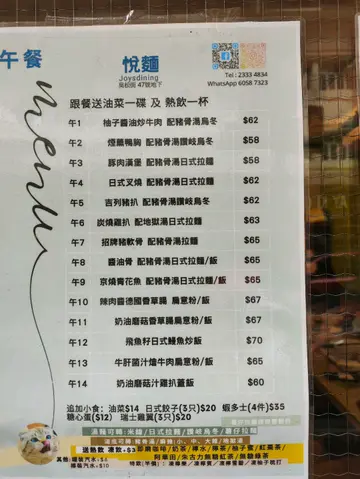 午餐
悅麵
Joysdining
吳松街 47號地下
Tel : 2333 4834
WhatsApp 6058 7323
menu
跟餐送油菜一碟 及 熱飲一杯
午1 柚子醬油炒牛肉 配豬骨湯烏冬 $62
午2 煙薰鴨胸 配豬骨湯讚岐烏冬 $58
午3 豚肉漢堡 配豬骨湯日式拉麵 $58
午4 日式叉燒 配豬骨湯日式拉麵 $62
午5 吉列豬扒 配豬骨湯讚岐烏冬 $62
午6 炭燒雞扒 配地獄湯日式拉麵 $63
午7 招牌豬軟骨 配豬骨湯拉麵 $65
午8 醬油骨 配豬骨湯日式拉麵/飯 $65
午9 京燒青花魚 配豬骨湯日式拉麵/飯 $65
午10 辣肉醬德國香草腸 扁意粉/飯 $67
午11 奶油蘑菇香草腸扁意粉/飯 $67
午12 飛魚籽日式鰻魚炒飯 $70
午13 牛肝菌汁燴牛肉扁意粉/飯 $65
午14 奶油蘑菇汁雞扒蓋飯 $60
追加小食: 油菜$14 日式餃子(3只)$20 蝦多士(4件)$35
糖心蛋($12) 瑞士雞翼(3只)$20
湯麵可轉: 米線/日式拉麵/讚岐烏冬/薯仔拉麵
送熱飲 凍飲+$3
即磨咖啡/奶茶/檸水/檸茶/柚子蜜/紅棗茶/
阿華田/朱古力無糖茉莉茶/無糖綠茶